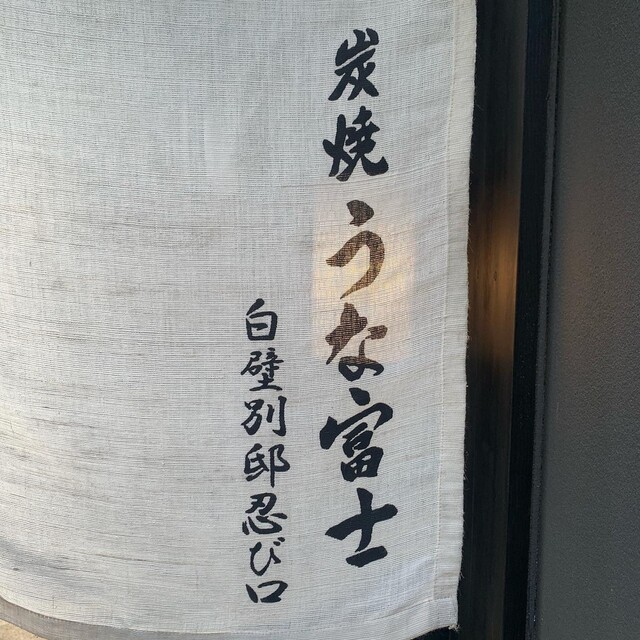 炭焼うな富士
白壁別邸忍び口